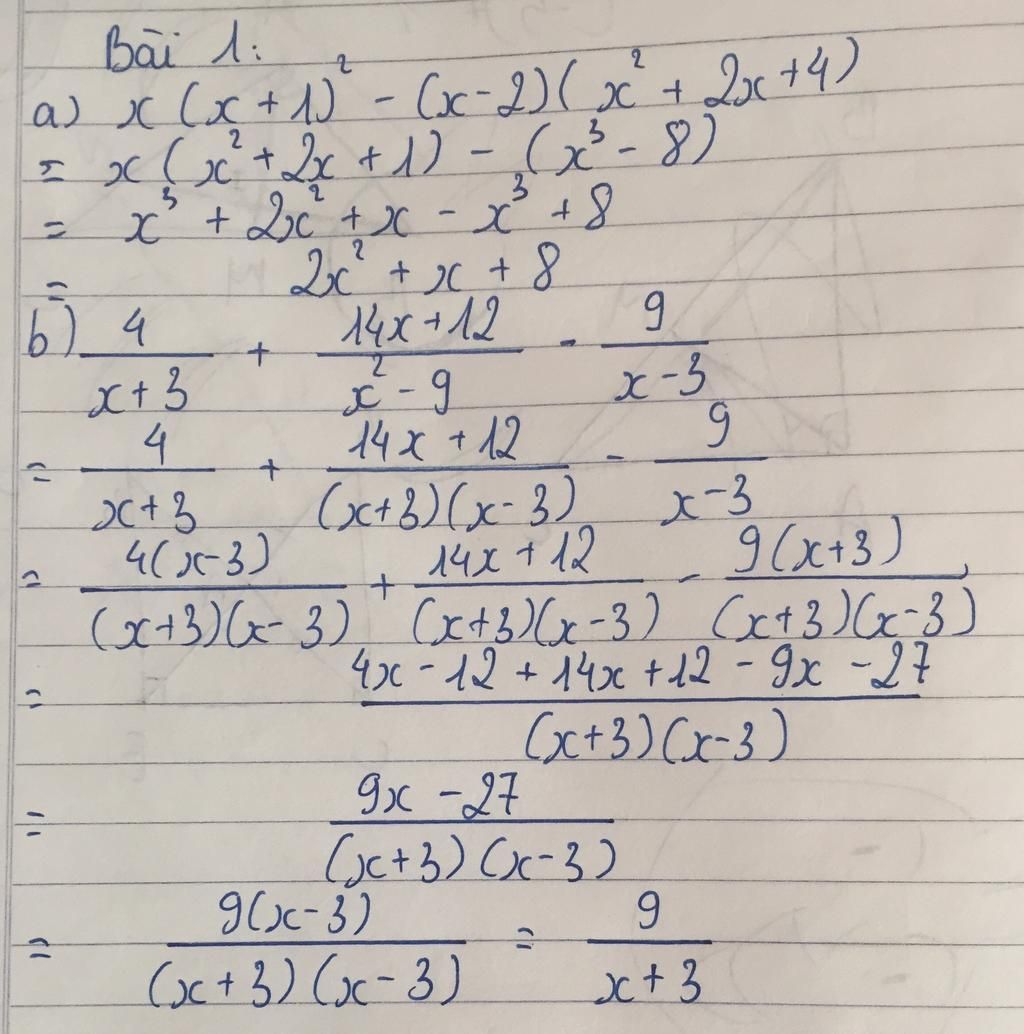 Bài 1:
a) x(x+1)² - (x-2)(x² + 2x+4)
= x(x²+2x+1) - (x³-8)
= x³ + 2x² + x - x³ + 8
= 2x² + x + 8
b) 4/(x+3) + (14x+12)/(x²-9) - 9/(x-3)
= 4/(x+3) + (14x+12)/((x+3)(x-3)) - 9/(x-3)
= 4(x-3)/((x+3)(x-3)) + (14x+12)/((x+3)(x-3)) - 9(x+3)/((x+3)(x-3))
= (4x-12+14x+12-9x-27)/((x+3)(x-3))
= (9x-27)/((x+3)(x-3))
= 9(x-3)/((x+3)(x-3)) = 9/(x+3)